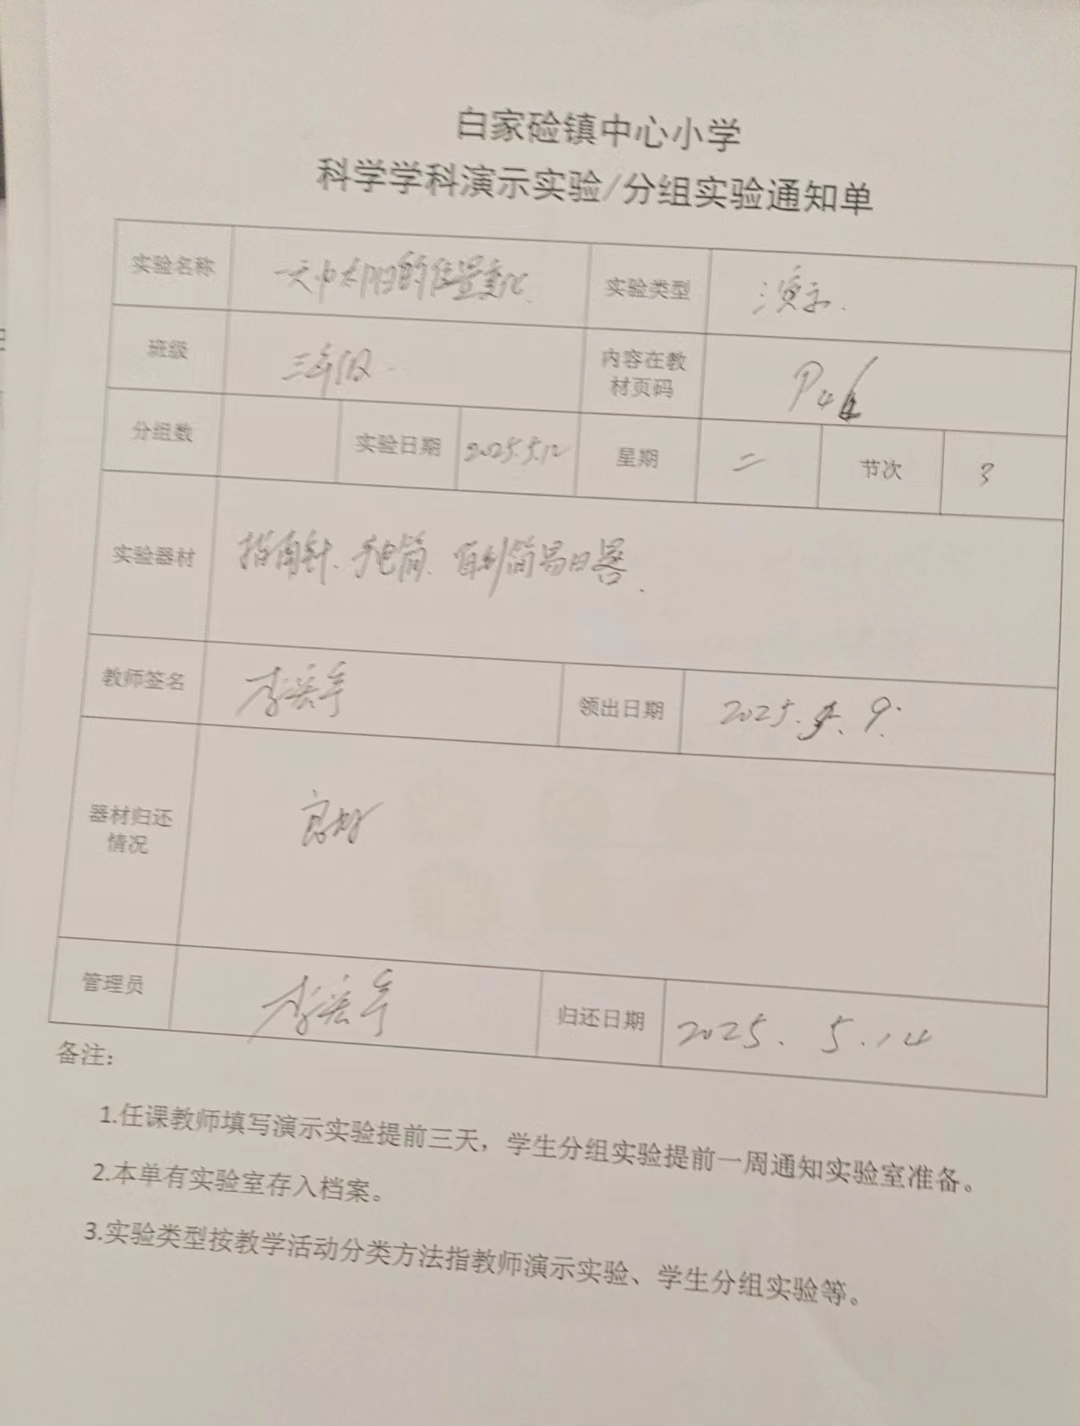 白家硷镇中心小学
科学学科演示实验/分组实验通知单
实验名称 一天中太阳的位置变化 实验类型 演示.
班级 三年级 内容在教材页码
分组数 实验日期 2025.5.12 星期 二 节次 3
实验器材 指南针、手电筒、自制简易日晷.
教师签名 领出日期 2025.5.9.
器材归还情况 良好
管理员 归还日期 2025.5.14
备注：
1.任课教师填写演示实验提前三天，学生分组实验提前一周通知实验室准备。
2.本单有实验室存入档案。
3.实验类型按教学活动分类方法指教师演示实验、学生分组实验等。